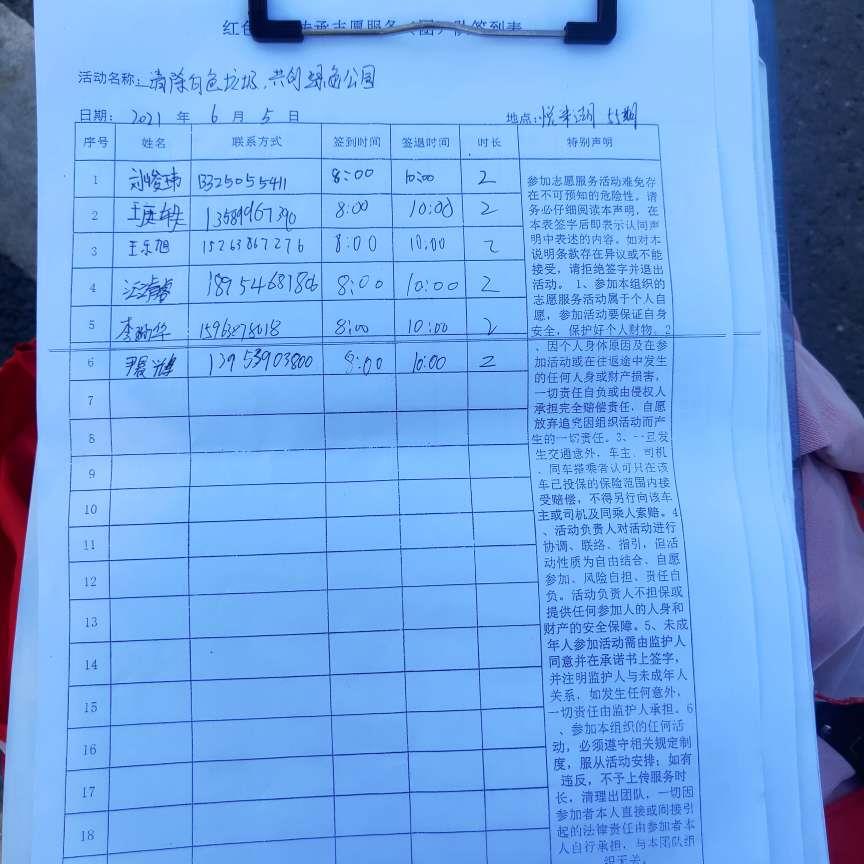 红色 传承志愿服务(团)队签到表
活动名称:清除白色垃圾,共创绿色公园
日期: 2021 年 6 月 5 日 地点:
序号 姓名 联系方式 签到时间 签退时间 时长 特别声明
1 刘俊玮 13325055411 8:00 10:00 2
2 13589967390 8:00 10:00 2
3 王乐旭 15263867276 8:00 10:00 2
4 18954681806 8:00 10:00 2
5 15963878018 8:00 10:00 2
6 13953903800 8:00 10:00 2
7
8
9
10
11
12
13
14
15
16
17
18
参加志愿服务活动难免存
在不可预知的危险性。请
务必仔细阅读本声明,在
本表签字后即表示认同声
明中表述的内容。如对本
说明条款存在异议或不能
接受,请拒绝签字并退出
活动。 1、参加本组织的
志愿服务活动属于个人自
愿,参加活动要保证自身
安全,保护好个人财物。2
、因个人身体原因及在参
加活动或在往返途中发生
的任何人身或财产损害,
一切责任自负或由侵权人
承担完全赔偿责任,自愿
放弃追究因组织活动而产
生的一切责任。3、一旦发
生交通意外,车主、司机
、同车搭乘者认可只在该
车已投保的保险范围内接
受赔偿,不得另行向该车
主或司机及同乘人索赔。4
、活动负责人对活动进行
协调、联络、指引,但活
动性质为自由结合、自愿
参加、风险自担、责任自
负。活动负责人不担保或
提供任何参加人的人身和
财产的安全保障。5、未成
年人参加活动需由监护人
同意并在承诺书上签字,
并注明监护人与未成年人
关系,如发生任何意外,
一切责任由监护人承担。6
、参加本组织的任何活
动,必须遵守相关规定制
度,服从活动安排;如有
违反,不予上传服务时
长,清理出团队,一切因
参加者本人直接或间接引
起的法律责任由参加者本
人自行承担,与本团队组
织无关。